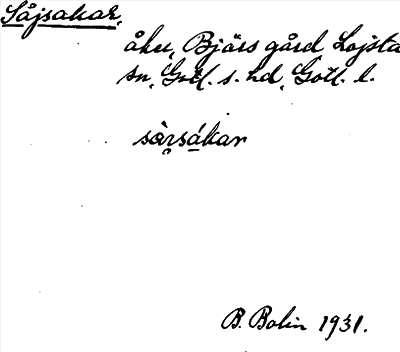 Såjsakar,
åker, Bjärs gård Lojsta
sn, Gotl. s. hd, Gotl. l.
sàrsákar
B. Bolin 1931.